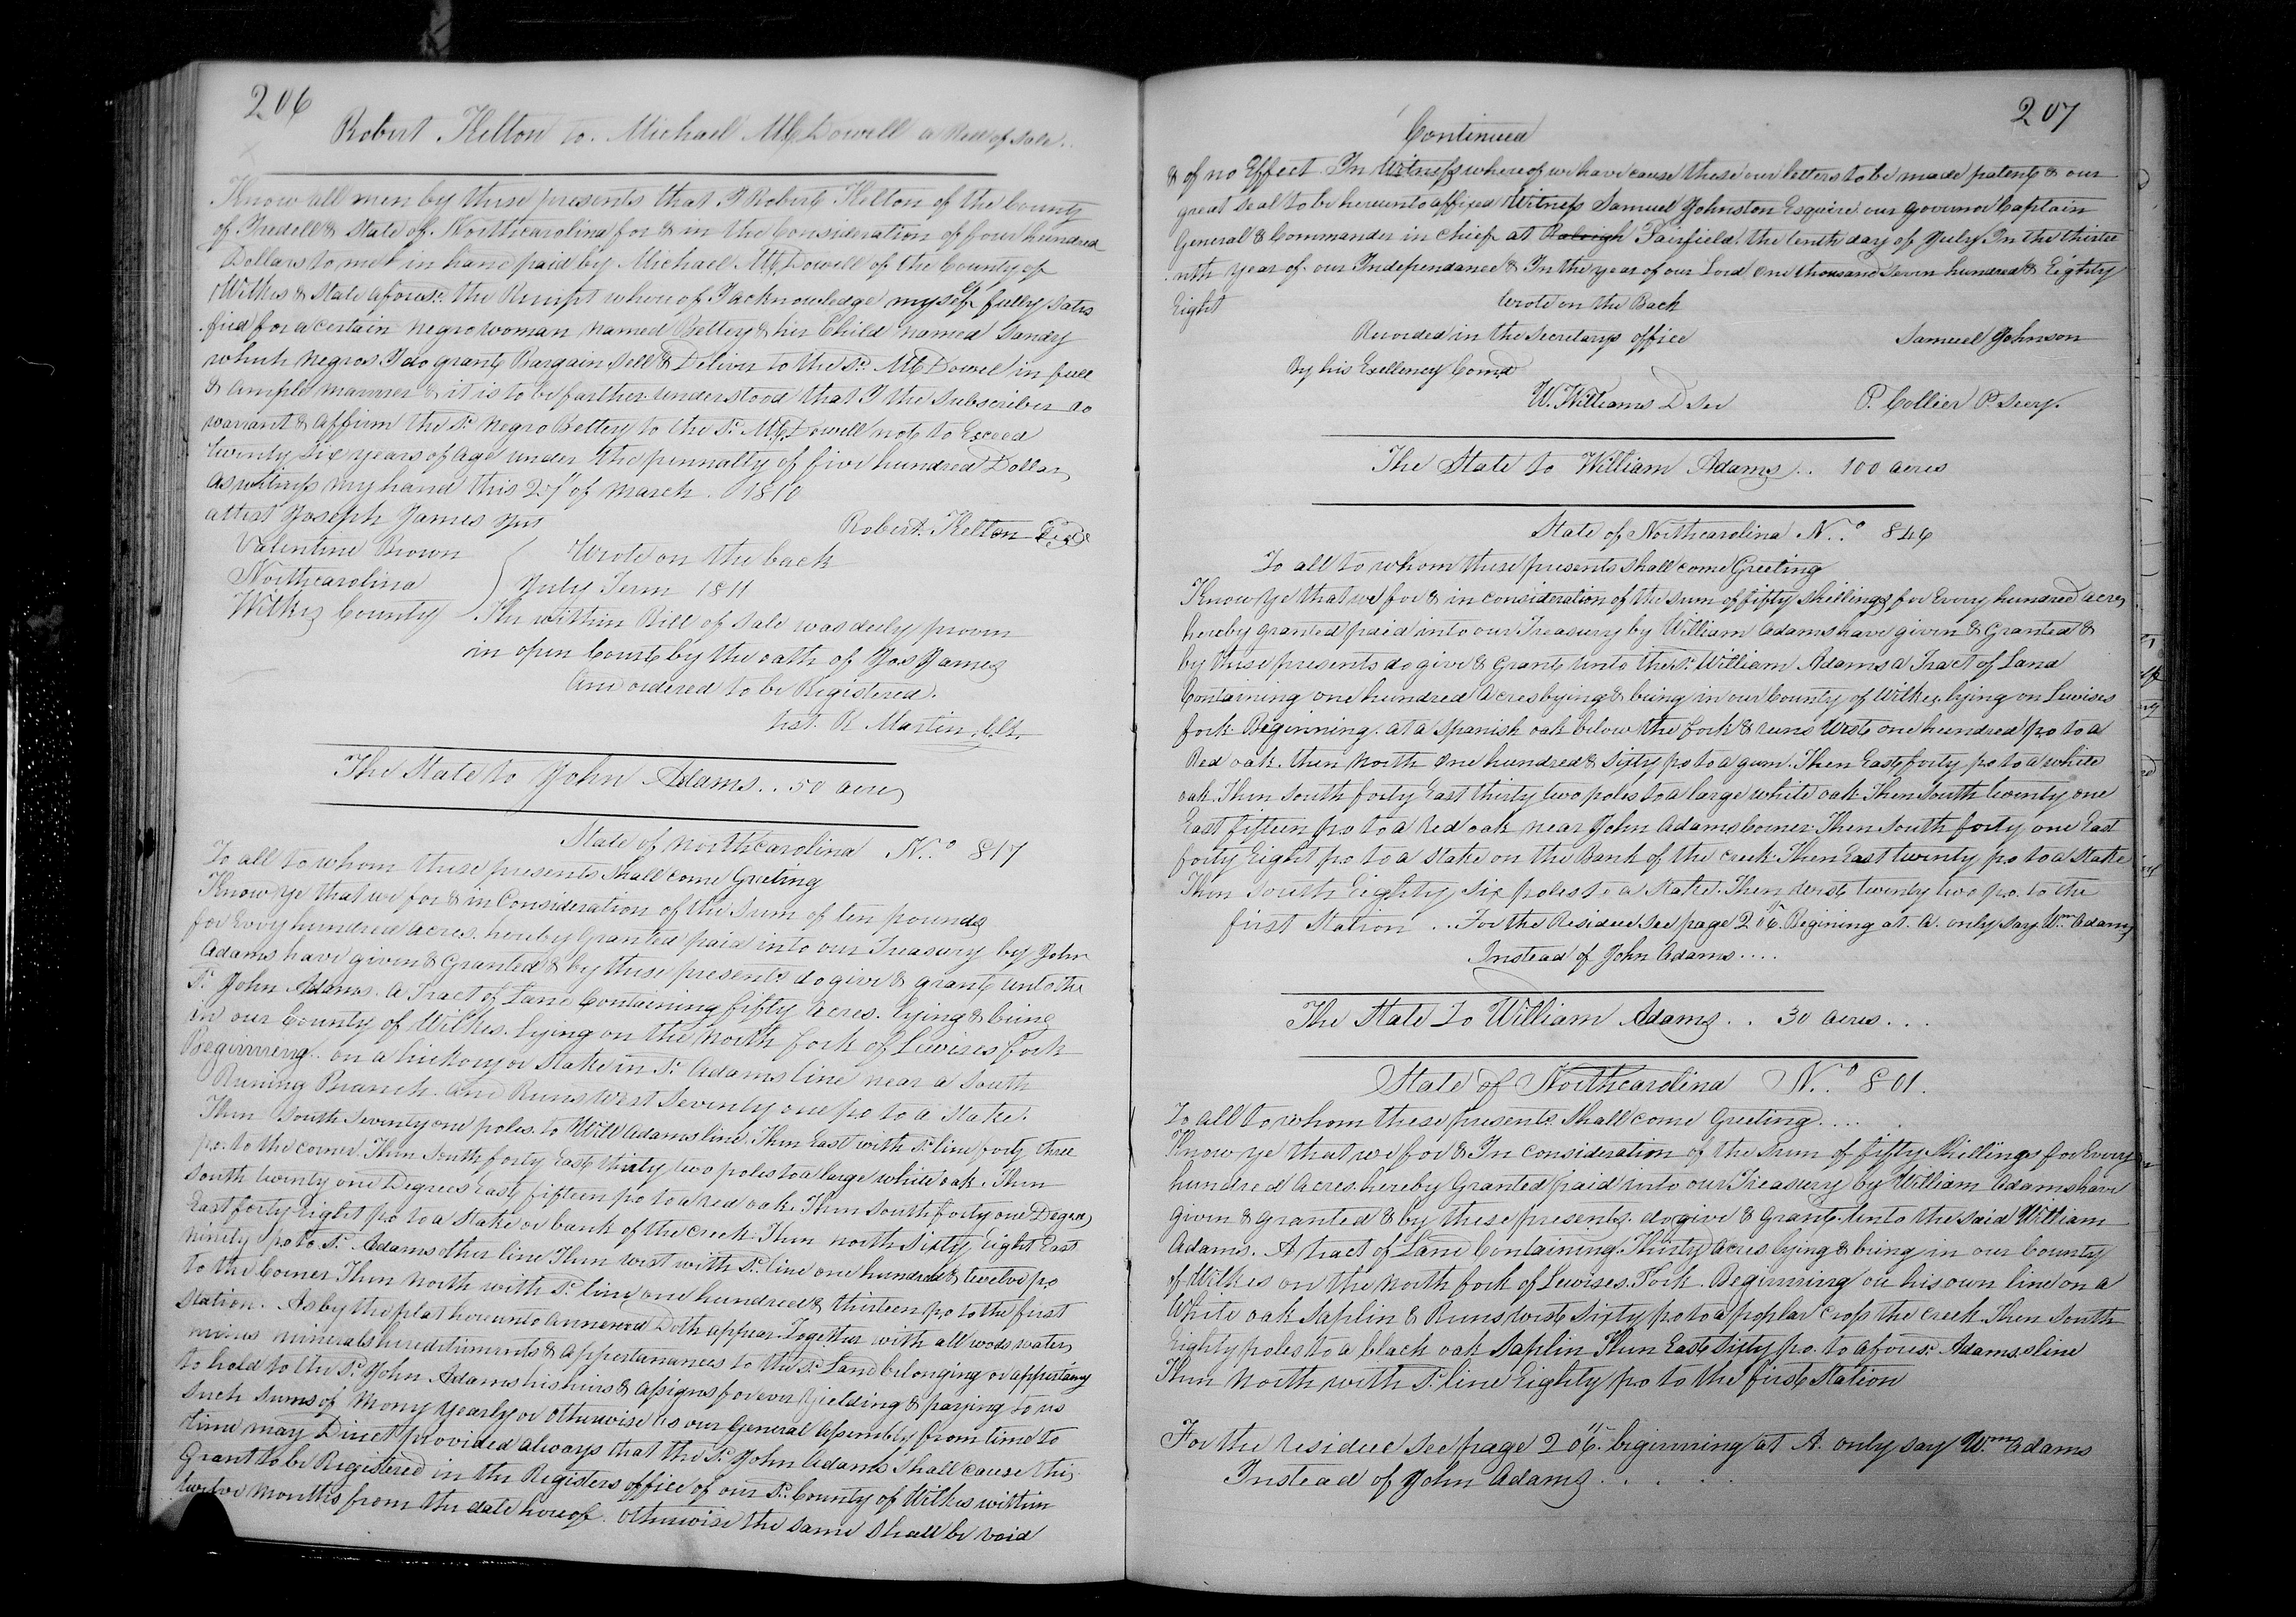 206
Robert Kelton to. Michael McDowell a Bill of Sale.
Know all men by these presents that I Robert Kelton of the County
of Iredell & State of Northcarolina for & in the Consideration of four hundred
Dollars to me in hand paid by Michael McDowell of the County of
Wilkes & State aforesd. the Receipt whereof I acknowledge myself fully satis
fied for a certain negro woman named Bettey & her Child named Sandy
which negros I do grant Bargain Sell & Deliver to the sd. McDowel in full
& ample manner & it is to be farther understood that I the Subscriber do
warrant & affirm the sd. negro Bettey to the sd. McDowell not to Exceed
twenty six years of age under the pennalty of five hundred Dollars
as witness my hand this 27th of march. 1810
attest Joseph James Jut
Robert. Kelton Seal
Valentine Brown
Wrote on the back
Northcarolina
July Term 1811
Wilkes County
The within Bill of Sale was duly proven
in open Court by the oath of Jos James
and ordered to be Registered.
Test. R Martin. Clk.
The State to John Adams.. 50 acres
State of northcarolina N..o 817
To all to whom these presents Shall come Greeting
Know ye that we for & in Consideration of the Sum of ten pounds
for Every hundred acres. hereby Granted paid into our Treasury by John
Adams have given & Granted & by these presents do give & grant unto the
sd. John Adams. a Tract of Land Containing fifty acres. lying & being
in our County of Wilkes. lying on the North fork of Lewises fork
Beginning. on a hickory or Stake in sd. Adams line near a South
Runing Branch. and Runs West Seventy one po to a Stake.
Then South Seventy one poles. to Will Adams line. Then East with sd. line forty three
po. to the corner. Then South forty East thirty two poles to a large white oak. Then
South twenty one Degrees East fifteen po to a red oak. Then South forty one Degres
East forty Eight po to a Stake or bank of the creek Then north Sixty Eight East
ninety po to sd. Adams other line Then west with sd. line one hundred & twelve po
to the Corner Then North with sd. line one hundred & thirteen po to the first
Station. As by the plat hereunto annexed Doth appear Together with all woods waters
mines minerals hereditiments & appertanances to the sd. Land belonging or appertaing
to hold to the sd. John Adams his heirs & assigns forever yielding & paying to us
Such Sums of Mony yearly or otherwise as our General Assembly from time to
time may Direct provided always that the sd. John Adams Shall cause this
Grant to be Registered in the Registers office of our sd. County of Wilkes within
twelve months from the date hereof. otherwise the same shall be void
207
Continued
& of no Effect In Witness whereof we have cause these our letters to be made patent & our
great Seal to be hereunto affixed Witness Samuel Johnston Esquire our Governor Captain
General & Commander in chief at Raleigh Fairfield the tenth day of July In the thirtee
nth year of our Independance & In the year of our Lord one thousand Seven hundred & Eighty
Eight
Wrote on the Back
Recorded in the Secretarys office
Samuel Johnson
By his Exellency Comd
W. Williams D Sec
P. Collier P. Secy.
The State to William Adams.. 100 acres
State of Northcarolina N..o 846
To all to whom these presents shall come Greeting
Know ye that we for & in consideration of the sum of fifty shillings for Every hundred acres
hereby granted paid into our Treasury by William Adams have given & Granted &
by these presents do give & Grant unto the sd. William Adams a Tract of Land
Containing one hundred acres lying & being in our County of Wilkes. lying on Lewises
fork Beginning. at a spanish oak below the fork & runs West one hundred po to a
Red oak. then North one hundred & sixty po to a gum. Then East forty po to a white
oak. Then South forty East thirty two poles to a large white oak Then South twenty one
East fifteen po to a red oak near John Adams Corner. Then South forty one East
forty Eight po to a Stake on the Bank of the creek. Then East twenty po to a Stake
Then South Eighty six poles to a Stake. Then West twenty two po. to the
first Station .. For the Residue See page 206. Begining at. A. only say Wm Adams
Instead of John Adams....
The State To William Adams.. 30 acres...
State of Northcarolina N..o 801.
To all to whom these presents Shall come Greeting....
Know ye that we for & In consideration of the Sum of fifty Shillings for Every
hundred acres. hereby Granted paid into our Treasury by William Adams have
given & granted & by these presents. do give & Grant. unto the said William
Adams. A tract of Land Containing. Thirty acres lying & being in our County
of Wilkes on the North fork of Lewises. Fork. Beginning on his own line on a
White oak Saplin & Runs West Sixty po to a poplar cross the creek. Then South
Eighty poles to a black oak Saplin Then East Sixty po. to aforesd. Adams. line
Then North with sd. line Eighty po to the first Station
For the residue see page 206. biginning at A. only say Wm Adams
Instead of John Adams.....